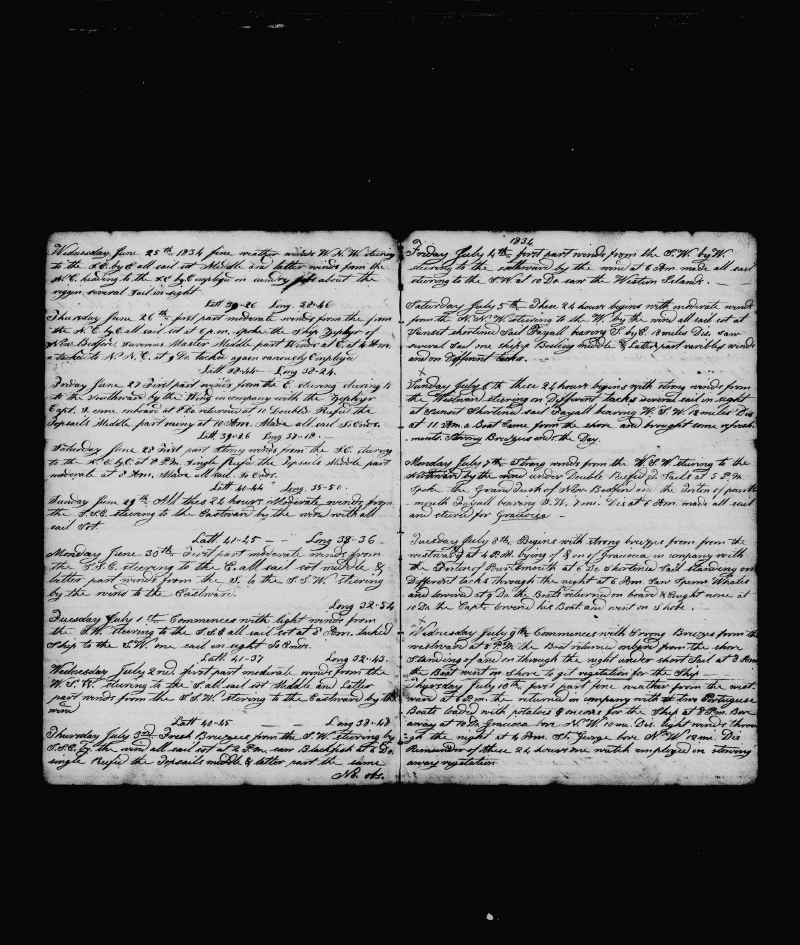 Wednesday June 25th 1834 fine weather winds W.N.W. steering
to the S.E. by E all sail set Middle and latter winds from the
N.E. heading to the S.E by E employed in sundry jobs about the
riggin several sail in sight
Latt 39-26 Long 28-46
Thursday June 26th first part moderate winds from the
the N.E. by E all sail set at 6 p.m. spoke the Ship Zephyr of
New Bedford Master Middle part Winds at E. at 4 A.m.
tacked to N.N.E. at 9 Do tacked again variously Employed
Latt 38-44 Long 32-24
Friday June 27 First part winds from the E. steering
to the Southward by the Wing in company with the Zephyr
Capt. came onboard at 8 Do returned at 10 Double Reefed the
Topsails Middle part at 10 A.m. Made all sail So Ends.
Latt 39-26 Long 37-18
Saturday June 28 First part Strong winds from the S.E. steering
to the N.E. by E at 8 P.M. single Reefed the Topsails Middle part
moderate at 8 A.m. Made all sail So Ends.
Latt 40-44 Long 35-50
Sunday June 29th All thes 24 hours Moderate winds from
the S.S.E. steering to the Eastward by the wind with all
sail Set
Latt 41-25 Long 38-36
Monday June 30th First part moderate winds from
the S.S.E. steering to the E. all sail set middle &
latter part winds from the S. to the S.S.W. steering
by the wind to the Eastward.
Long 32-54
Tuesday July 1st Commences with light winds from
the S.W. steering to the S.E all sail set at 8 A.m. tacked
Ship to the S.W. one sail in sight So Ends
Latt. 41-37 Long 32-43
Wednesday July 2nd first part moderate winds from the
W.S.W. steering to the S. all sail set Middle and Latter
part winds from the S.S.W. steering to the Eastward by the
wind
Latt 40-45 Long 32-43
Thursday July 3rd Fresh Breezes from the S.W. steering by
S.S.E. by the wind all sail set at 2 P.m. saw Blackfish at 6 Do
single Reefed the Topsails middle & latter part the same
No. obs.
1834
Friday July 4th first part winds from the S.W. by W.
steering to the eastward by the wind at 6 A.m. made all sail
steering to the S.W. at 10 Do saw the Western Islands.
Saturday July 5th These 24 hours begins with moderate winds
from the N.N.W. steering to the W. by the wind all sail set at
Sunset shortened Sail Fayall bearing S. by E. 18 miles Dis. saw
several Sail one ship Boiling middle & Latter part varibles winds
and on Different tacks.
Sunday July 6th these 24 hours begins with strong winds from
the Westward steering on Different tacks several sail in sight
at Sunset Shortened sail Fayall bearing W.S.W. 12 miles Dis
at 11 A.m. a Boat Came from the shore and brought some refresh-
ments Strong Breezes ends the Day.
Monday July 7th Strong winds from the W.S.W. steering to the
Northward by the wind under Double Reefed T. Sails at 5 P.M.
Spoke the Grand Turk of New Bedford and the Triton of
mouth Fayall bearing S.W. 7 mi. Dis at 6 A.m. made all sail
and steered for Graciosa
Tuesday July 8th. Begins with strong breezes from from the
westward at 4 P.M. lying of & on of Graciosa in company with
the Triton of Portsmouth at 6 Do Shortened Sail standing on
Different tacks through the night at 6 A.m. Saw Sperm Whales
and lowered at 9 Do the Boats returned on board & Caught none at
10 Do the Capt. lowered his Boat and went on Shore.
Wednesday July 9th Commences with Strong Breezes from the
westward at 8 P.M. the Boat returned onboard from the shore
Standing of and on through the night under short Sail at 8 A.m
the Boat went on Shore to get vegetation for the Ship
Thursday July 10th first part fine weather from the west-
ward at 6 P.m. the returned in company with to two Portuguese
Boats loaded with potatoes & onions for the Ship at 8 P.m. Bore
away at 10 Do Graciosa bore N.W. 10 mi Dis. light winds throu
gh the night at 4 A.m. St. George bore N.W. 12 mi Dis
Remainder of these 24 hours one watch employed in stowing
away vegetation